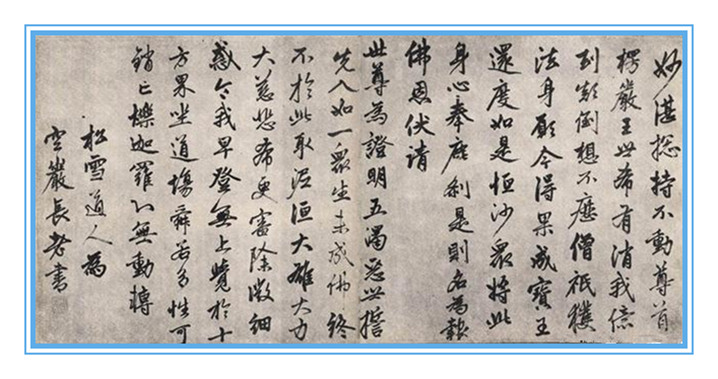 妙湛揔持不動尊首
楞嚴王世希有消我億
刧顛倒想不歷僧祇獲
法身願今得果成寶王
還度如是恒沙衆將此
身心奉塵刹是則名為報
佛恩伏請
世尊為證明五濁惡世誓
先入如一衆生未成佛終
不於此取泥洹大雄大力
大慈悲希更審除微細
惑令我早登無上覺於十
方界坐道場舜若多性可
銷亡爍迦羅心無動轉
松雪道人為
空巖長老書